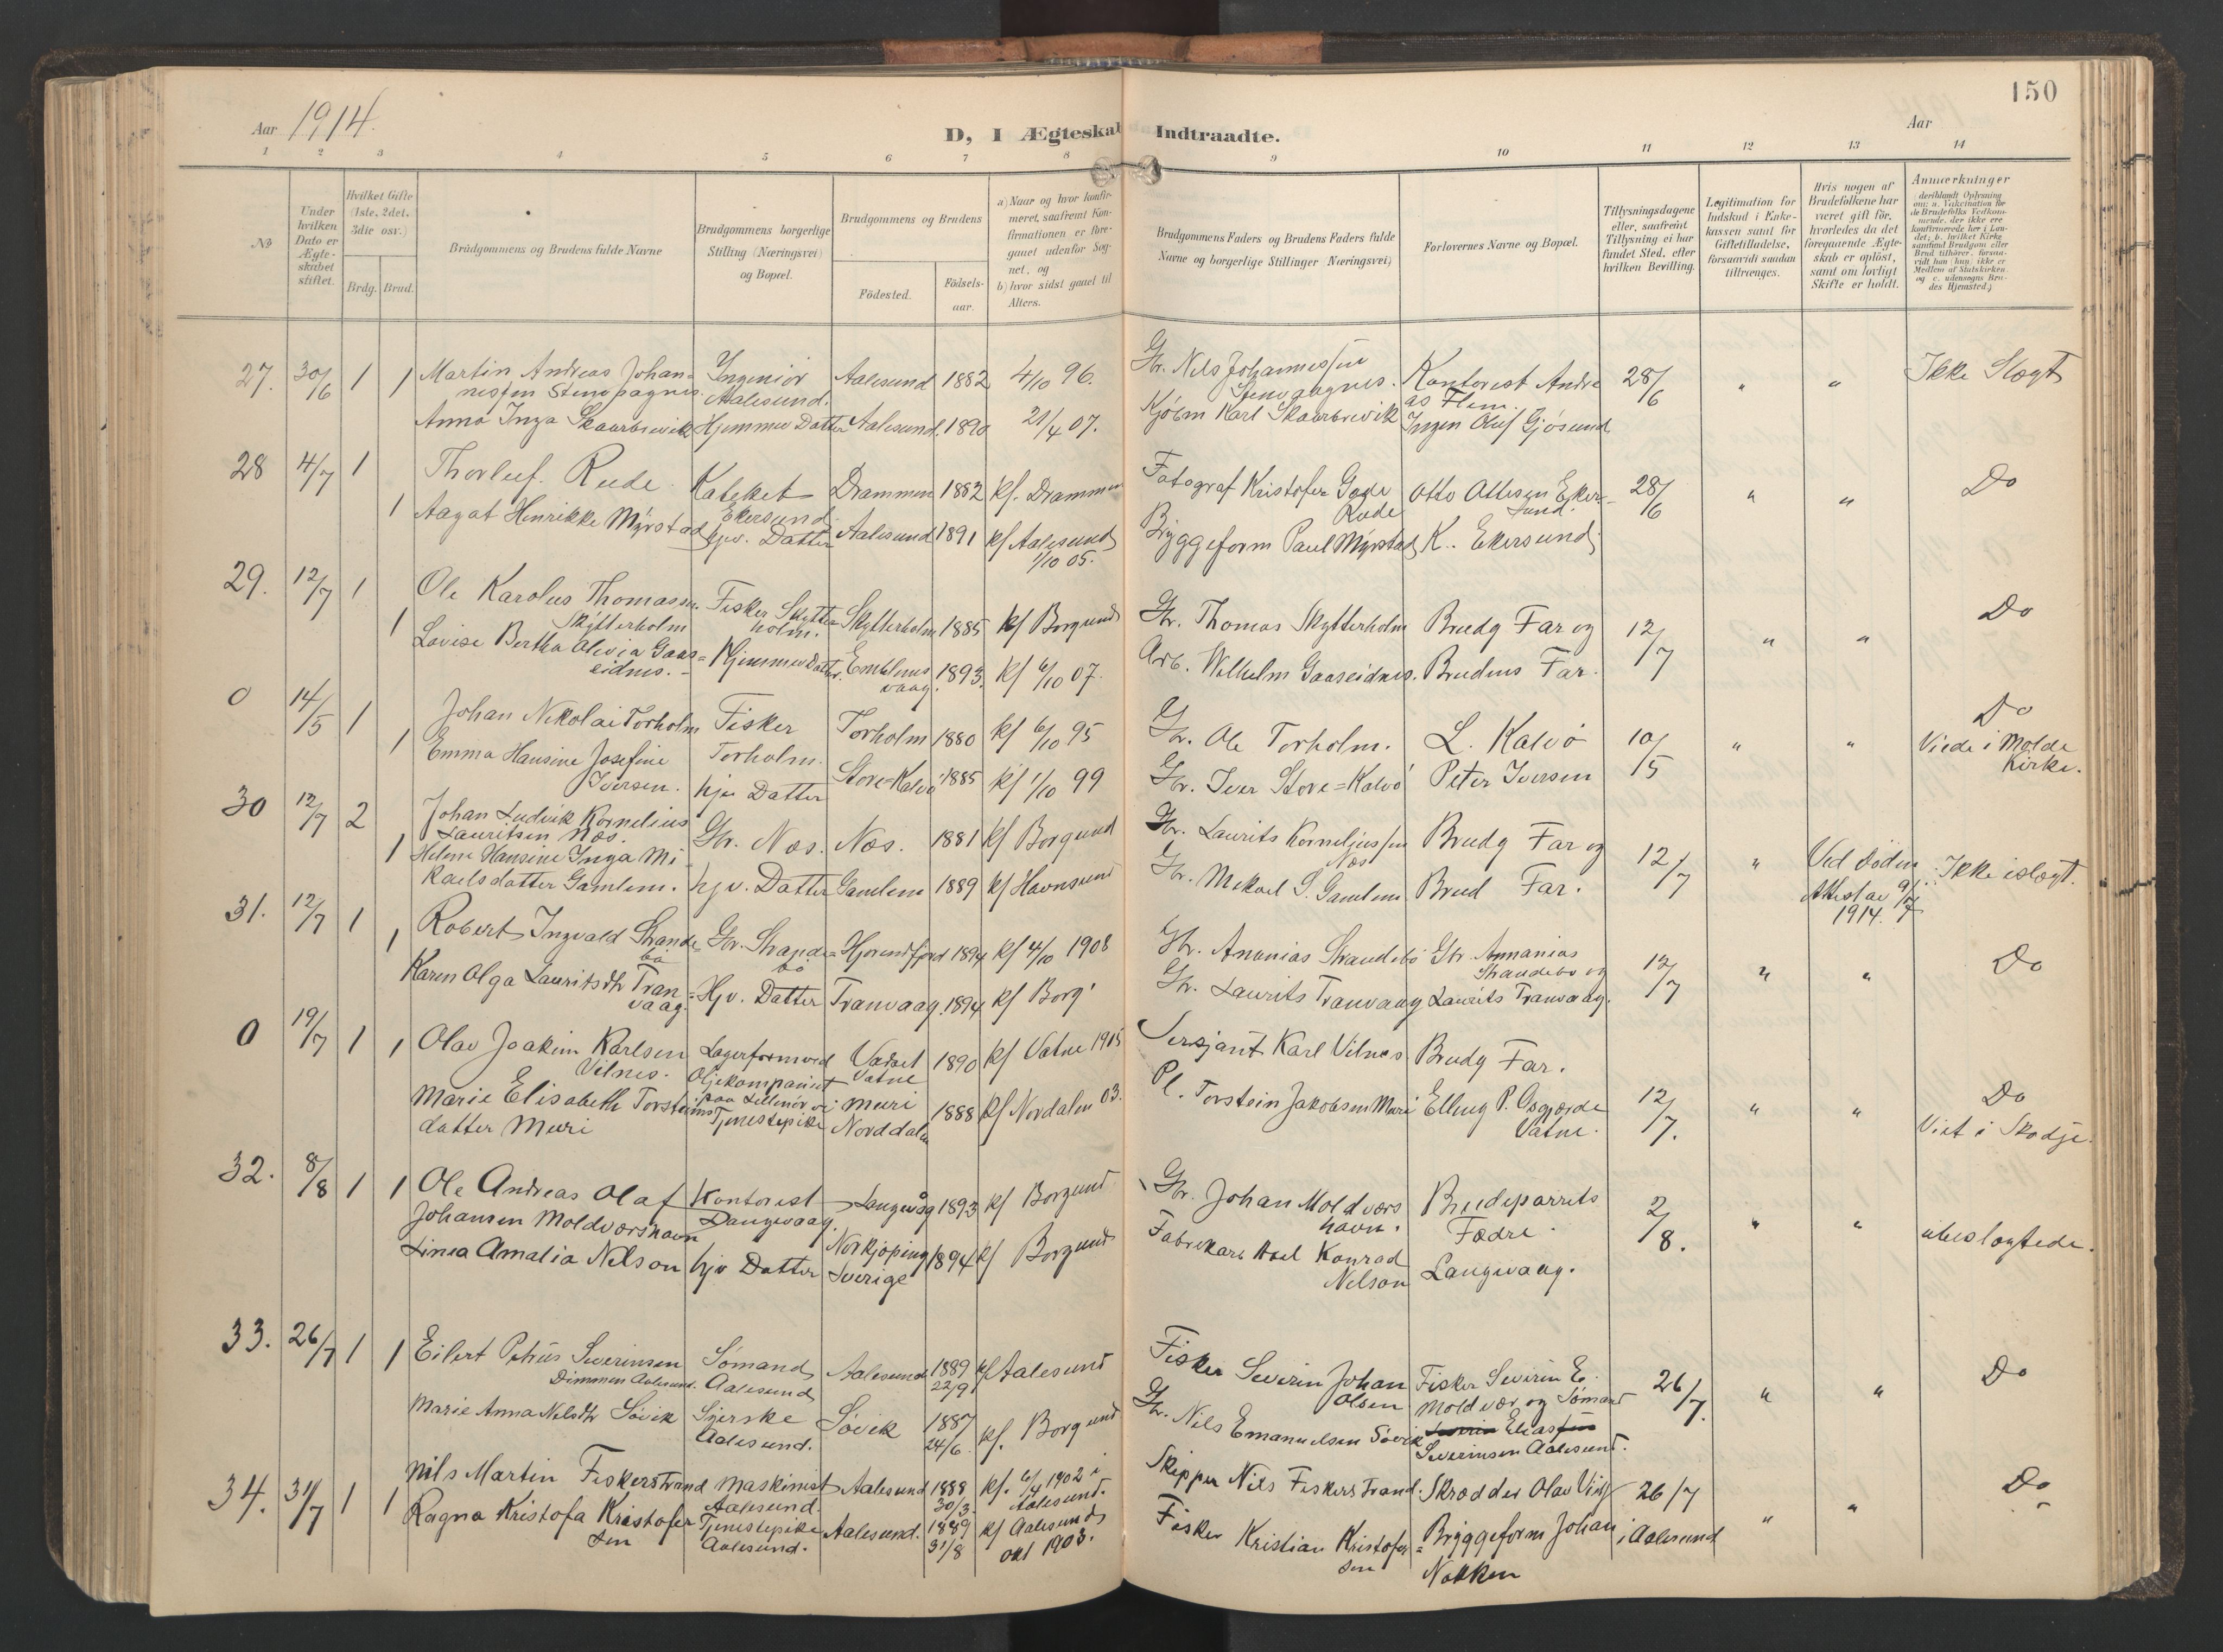 150
Aar 1914.
D, I Ægteskab Indtraadte.
Aar
1 2 3 4 5 6 7 8 9 10 11 12 13 14
No
Under hvilken Dato er Ægteskabet stiftet.
Hvilket Gifte (1ste, 2det, 3die osv.)
Brdg. Brud.
Brudgommens og Brudens fulde Navne
Brudgommens borgerlige Stilling (Næringsvei) og Bopæl.
Brudgommens og Brudens
Fødested.
Fødselsaar.
a) Naar og hvor konfirmeret, saafremt Konfirmationen er foregaaet udenfor Sognet, og
b) hvor sidst gaaet til Alters.
Brudgommens Faders og Brudens Faders fulde Navne og borgerlige Stillinger (Næringsvei)
Forlovernes Navne og Bopæl.
Tillysningsdagene eller, saafremt Tillysning ei har fundet Sted, efter hvilken Bevilling.
Legitimation for Indskud i Enkekassen samt for Giftetilladelse, forsaavidt saadan tiltrænges.
Hvis nogen af Brudefolkene har været gift før, hvorledes da det foregaaende Ægteskab er opløst, samt om lovligt Skifte er holdt.
Anmærkninger
27. 30/6 1 1 Martin Andreas Johannessen Stenvaagnes. Ingeniør Aalesund. Aalesund 1882 4/10 96. Gbr. Nils Johannessen Stenvaagnes. Kontorist Andreas Flem 28/6 " " Ikke Slegt
Anna Inga Skaarbrevik Hjemmev Datter Aalesund. 1890 21/4 07. Kjøbm Karl Skaarbrevik Ingen Oluf Gjøsund
28 4/7 1 Thorleif Rude Kateket Ekersund. Drammen 1882 kf. Drammen Fotograf Kristofer Gade Rude Otto Ottesen Ekersund. 28/6 " " Do
1 Aagot Henrikke Myrstad hjv. Datter Aalesund 1891 kf Aalesund 1/10 05. Bryggeform Paul Myrstad K. Ekersund
29. 12/7 1 Ole Karolus Thomassen Skytterholm Fisker Skytterholm. Skytterholm 1885 kf Borgund Gbr. Thomas Skytterholm Brudg Far og 12/7 " " Do
1 Lovise Bertha Olivia Gaaseidnes. Hjemmev Datter. Emblemsvaag. 1893. kf 6/10 07. Arb. Wilhelm Gaaseidnes. Brudens Far.
0 14/5 1 Johan Nikolai Torholm Fisker Torholm. Torholm 1880 kf 6/10 95 Gbr. Ole Torholm. L. Kalvø 10/5 " " Do
1 Emma Hansine Josefine Iversen. hjv Datter Store=Kalvø 1885 kf 1/10 99 Gbr. Iver Store=Kalvø Peter Iversen Viede i Molde Kirke.
30 12/7 2 Johan Ludvik Kornelius Lauritsen Næs. Gbr. Næs. Næs. 1881 kf Borgund Gbr. Laurits Korneliussen Næs Brudg Far og 12/7 " Ved Døden Attest av 9/7 1914. Ikke i slegt.
1 Helene Hansine Inga Mikaelsdatter Gamlem. hjv. Datter Gamlem 1889 kf Havnsund Gbr. Mikael S. Gamlem Brud Far.
31. 12/7 1 1 Robert Ingvald Strandebø Gbr. Strandebø Hjørundfjord 1894 kf 4/10 1908 Gbr. Ananias Strandebø Gbr. Annanias Strandebø og 12/7 " " Do
Karen Olga Lauritsdtr Tranvaag. Hjv. Datter Tranvaag. 1894 kf Borg' Gbr. Laurits Tranvaag Laurits Tranvaag.
0 19/7 1 1 Olav Joakim Karlsen Vilnes. Lagerform ved Oljekompaniet paa Vatne 1890 kf Vatne 1915 Sersjant Karl Vilnes Brudg Far.
Marie Elisabeth Torsteinsdatter Muri Tjenestepike Muri Norddalen 1888 kf Nordalen 03. Pl. Torstein Jakobsen Muri Elling P. Vatne. 12/7. " " Do Viet i Skodje.
32. 8/8 1 1 Ole Andreas Olaf Johansen Moldværshavn Kontorist Langevaag. Langevåg 1893 kf Borgund Gbr. Johan Moldværshavn. Brudeparrets Fædre 2/8. " " ubeslegtede.
Linea Amalia Nelson hjv Datter Norkjøping Sverige 1894 kf Borgund Fabrikarb Axel Konrad Nelson Langevaag.
33. 26/7 1 1 Eilert Petrus Severinsen Dimmen Aalesund. Sømand Aalesund Aalesund 1889 22/9 kf Aalesund Fisker Severin Johan Olsen Fisker Severin E. Moldvær og Sømand 26/7. " " Do
Marie Anna Nelsdtr Søvik Syerske Aalesund. Søvik 1887 24/6 kf. Borgund Gbr. Nils Emanuelsen Søvik Elias Severinsen Aalesund.
34. 31/7 1 1 Nils Martin Fiskerstrand Maskinist Aalesund. Aalesund 1888 30/3 kf. 6/4 1902 i Aalesund. Skipper Nils Fiskerstrand. Skrædder Olav Viig 26/7 " " Do
Ragna Kristofa Kristofersen Tjenestepike Aalesund. Aalesund. 1889 31/8 kf Aalesund okt 1903. Fisker Kristian Kristofersen Bryggeform Johan Nakken i Aalesund